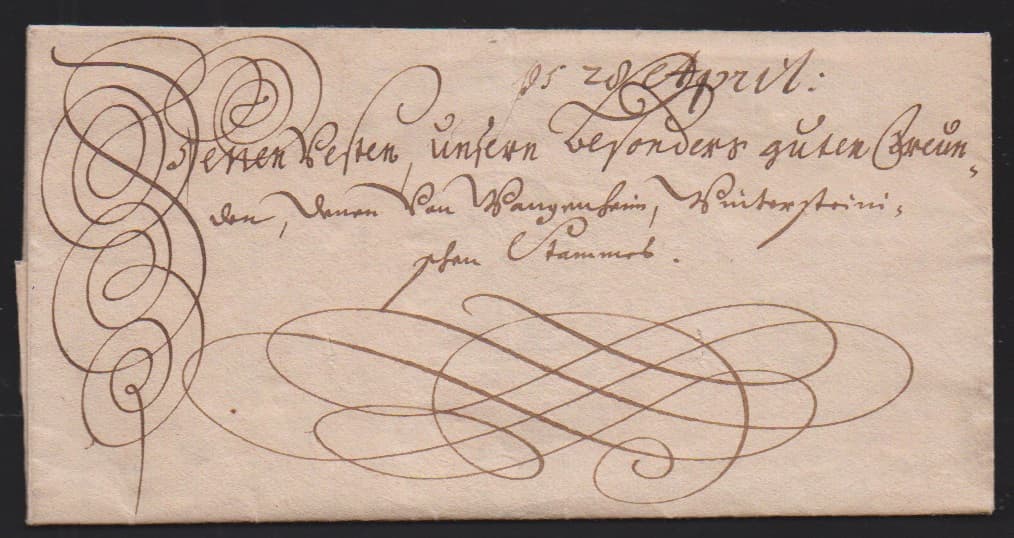 ps 28 April:
Denen Vesten, unsern besonders guten Freun-
den, denen Von Wangenheim, Wintersteini-
schen Stammes.